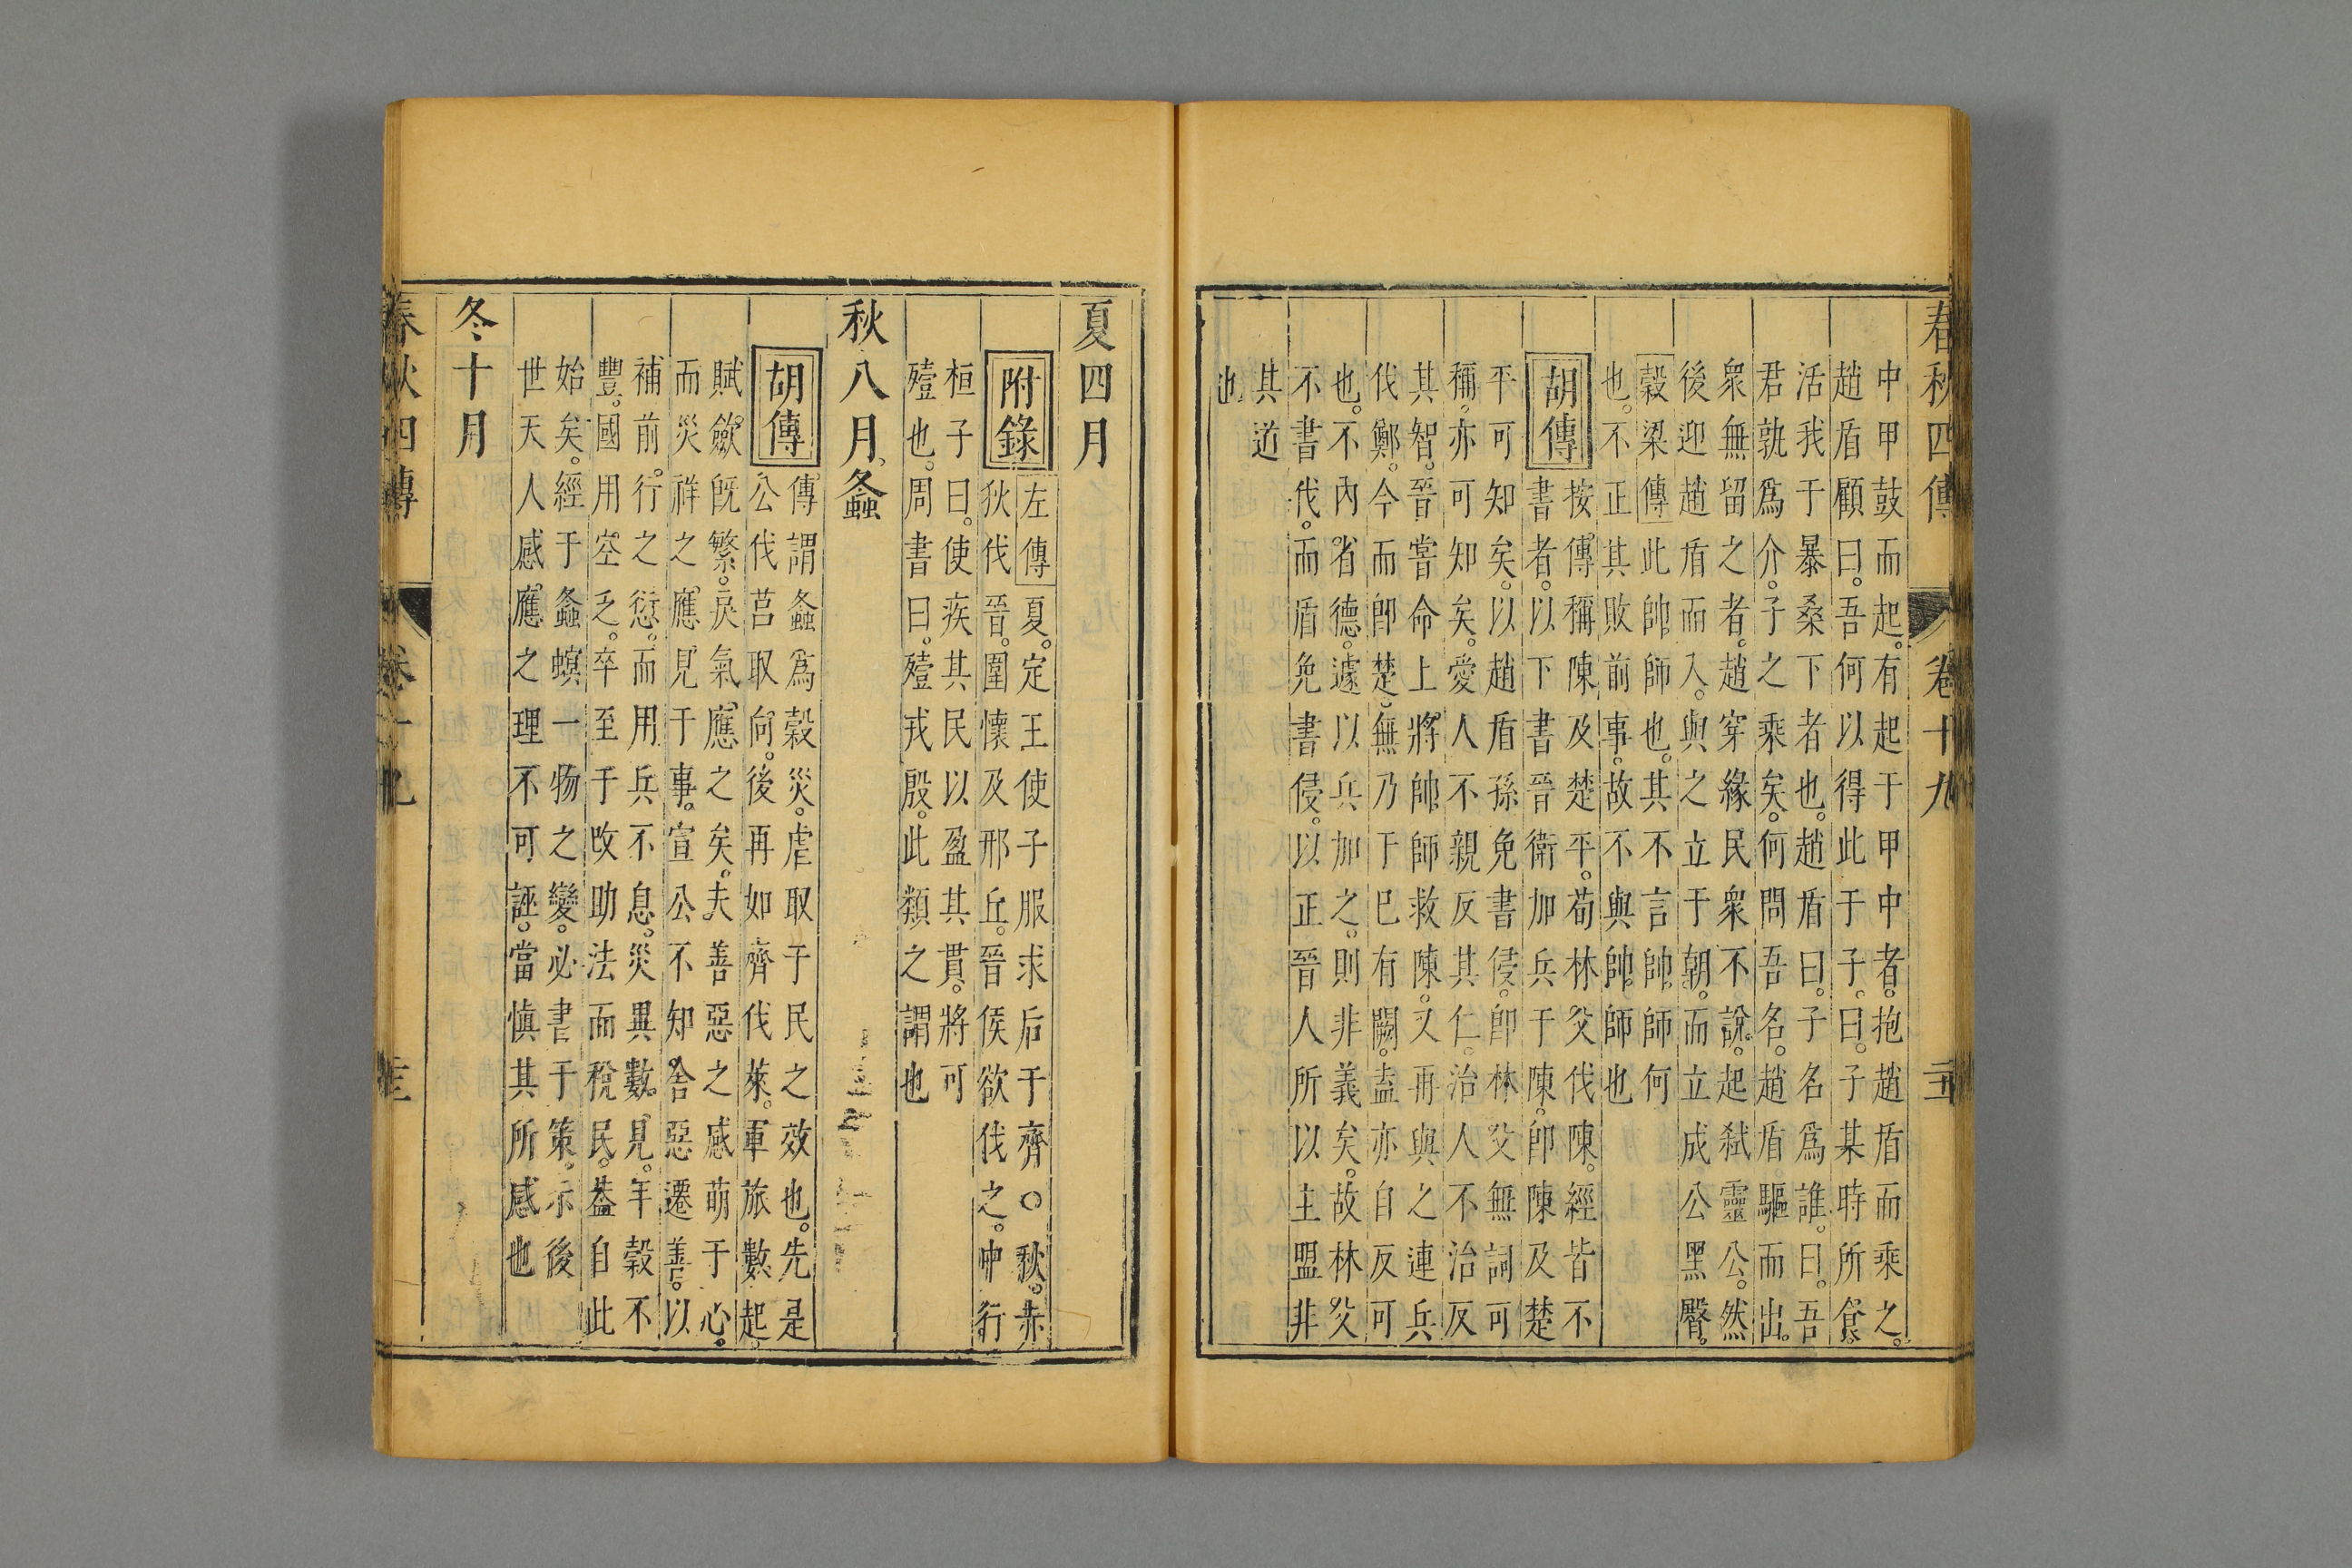 春秋四傳 卷十九
中甲鼓而起。有起于甲中者。抱趙盾而乘之。
趙盾顧曰。吾何以得此于子。曰。子某時所食。
活我于暴桑下者也。趙盾曰。子名爲誰。曰。吾
君孰爲介。子之乘矣。何問吾名。趙盾驅而出。
衆無留之者。趙穿緣民衆不說。起弑靈公。然
後迎趙盾而入。與之立于朝。而立成公黑臀。
穀梁傳此帥師也。其不言帥師何
也。不正其敗前事。故不與帥師也
胡傳
按傳稱陳及楚平。荀林父伐陳。經皆不
書者。以下書晉衛加兵于陳。卽陳及楚
平可知矣。以趙盾孫免書侵。卽林父無詞可
稱。亦可知矣。愛人不親反其仁。治人不治反
其智。晉嘗命上將帥師救陳。又再與之連兵
伐鄭。今而卽楚。無乃于巳有闕。盍亦自反可
也。不內省德。遽以兵加之。則非義矣。故林父
不書伐。而盾免書侵。以正晉人所以主盟非
其道
也
夏四月
附錄
左傳夏。定王使子服求后于齊○秋。赤
狄伐晉。圍懷及邢丘。晉侯欲伐之。中行
桓子曰。使疾其民以盈其貫。將可
殪也。周書曰。殪戎殷。此類之謂也
秋八月螽
胡傳
傳謂螽爲穀災。虐取于民之效也。先是
公伐莒取向。後再如齊伐萊。軍旅數起。
賦斂旣繁。戾氣應之矣。夫善惡之感萌于心。
而災祥之應見于事。宣公不知舍惡遷善。以
補前行之愆。而用兵不息。災異數見。年穀不
豐。國用空乏。卒至于改助法而稅民。蓋自此
始矣。經于螽螟一物之變。必書于策。示後
世天人感應之理不可誣。當愼其所感也
冬十月
春秋四傳 卷十九